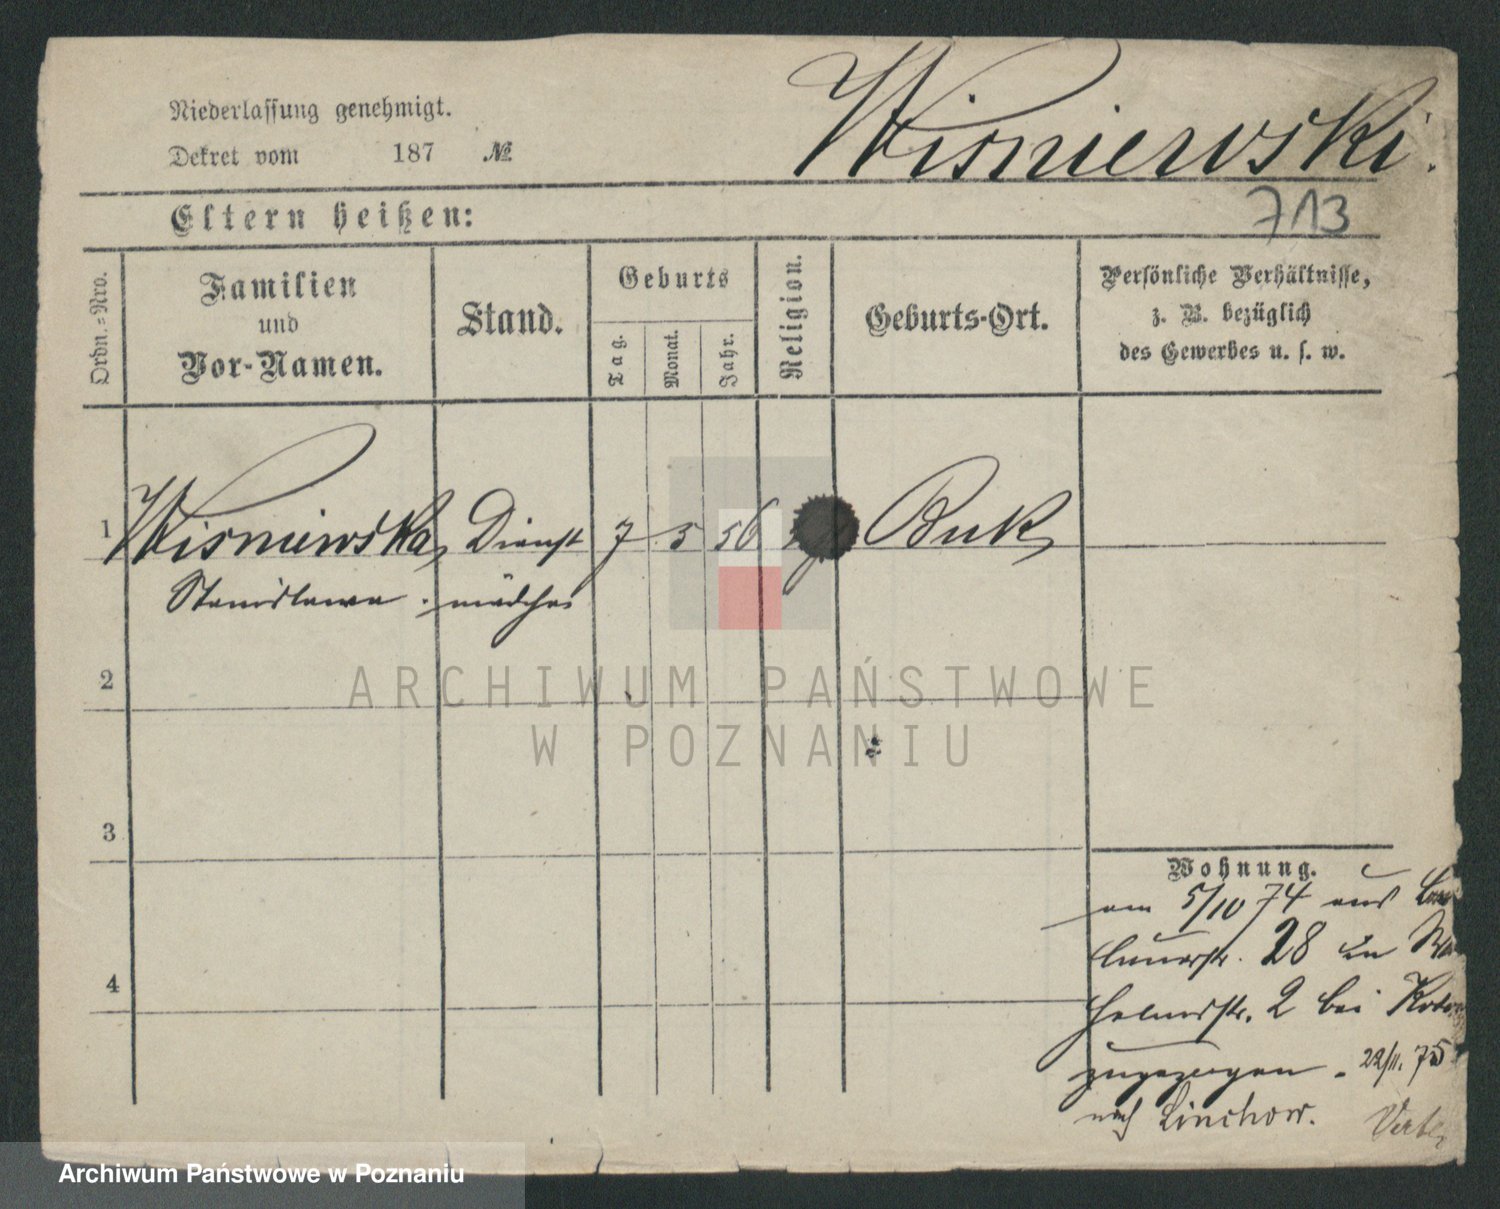 Wisniewski.
Niederlassung genehmigt.
Dekret vom 187 №
713
Eltern heißen:
Ordn.=Nro.
Familien
und
Vor-Namen.
Stand.
Geburts
Tag.
Monat.
Jahr.
Religion.
Geburts-Ort.
Persönliche Verhältnisse,
z. B. bezüglich
des Gewerbes u. s. w.
1 Wisniewska, Dienst 7 5 56 Buk
Stanislawa. mädchen
2
3
4
Wohnung.
am 5/10 74 aus
28 in
2 bei
zugezogen. 22/11. 75
nach Linchow.
ARCHIWUM PAŃSTWOWE
W POZNANIU
Archiwum Państwowe w Poznaniu